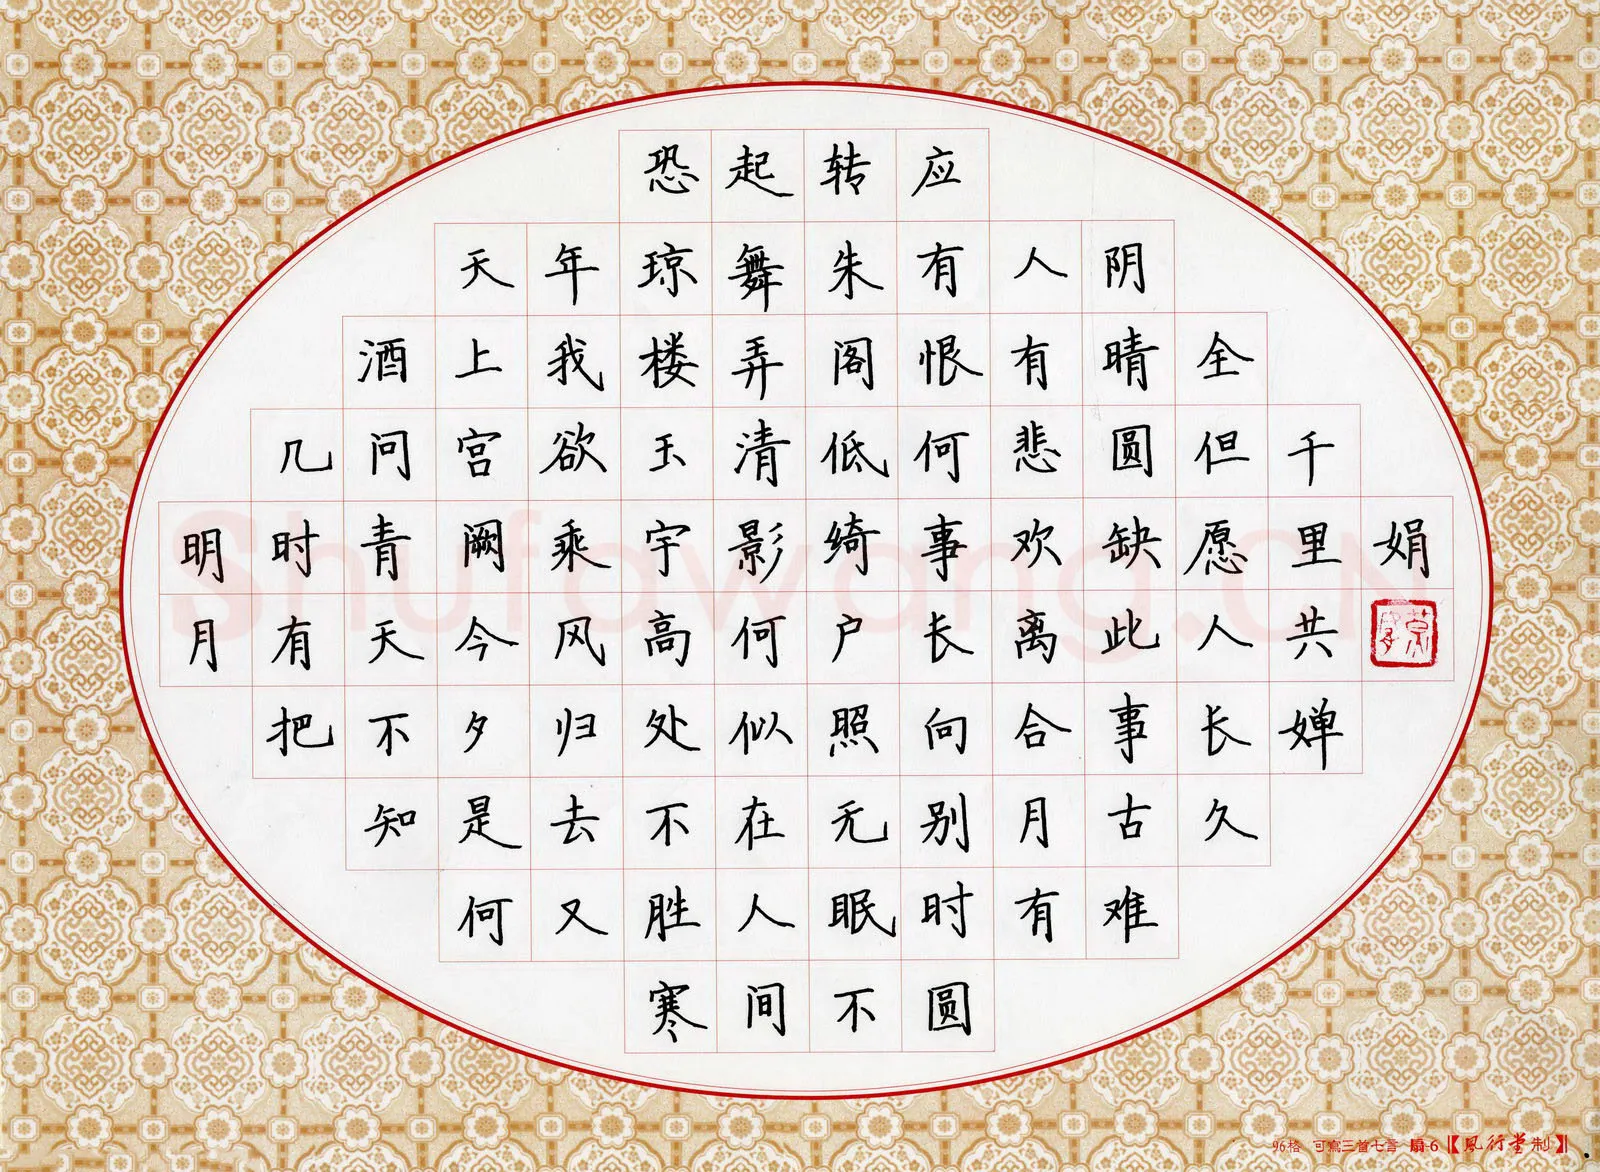 明月
几时有把
酒问青天不知
天上宫阙今夕是何
年我欲乘风归去又
恐琼楼玉宇高处不胜寒
起舞弄清影何似在人间
转朱阁低绮户照无眠不
应有恨何事长向别时圆
人有悲欢离合月有
阴晴圆缺此事古难
全但愿人长久
千里共婵
娟
Shufawang.CN
96格 可寫三首七言 扇-6【風行堂制】